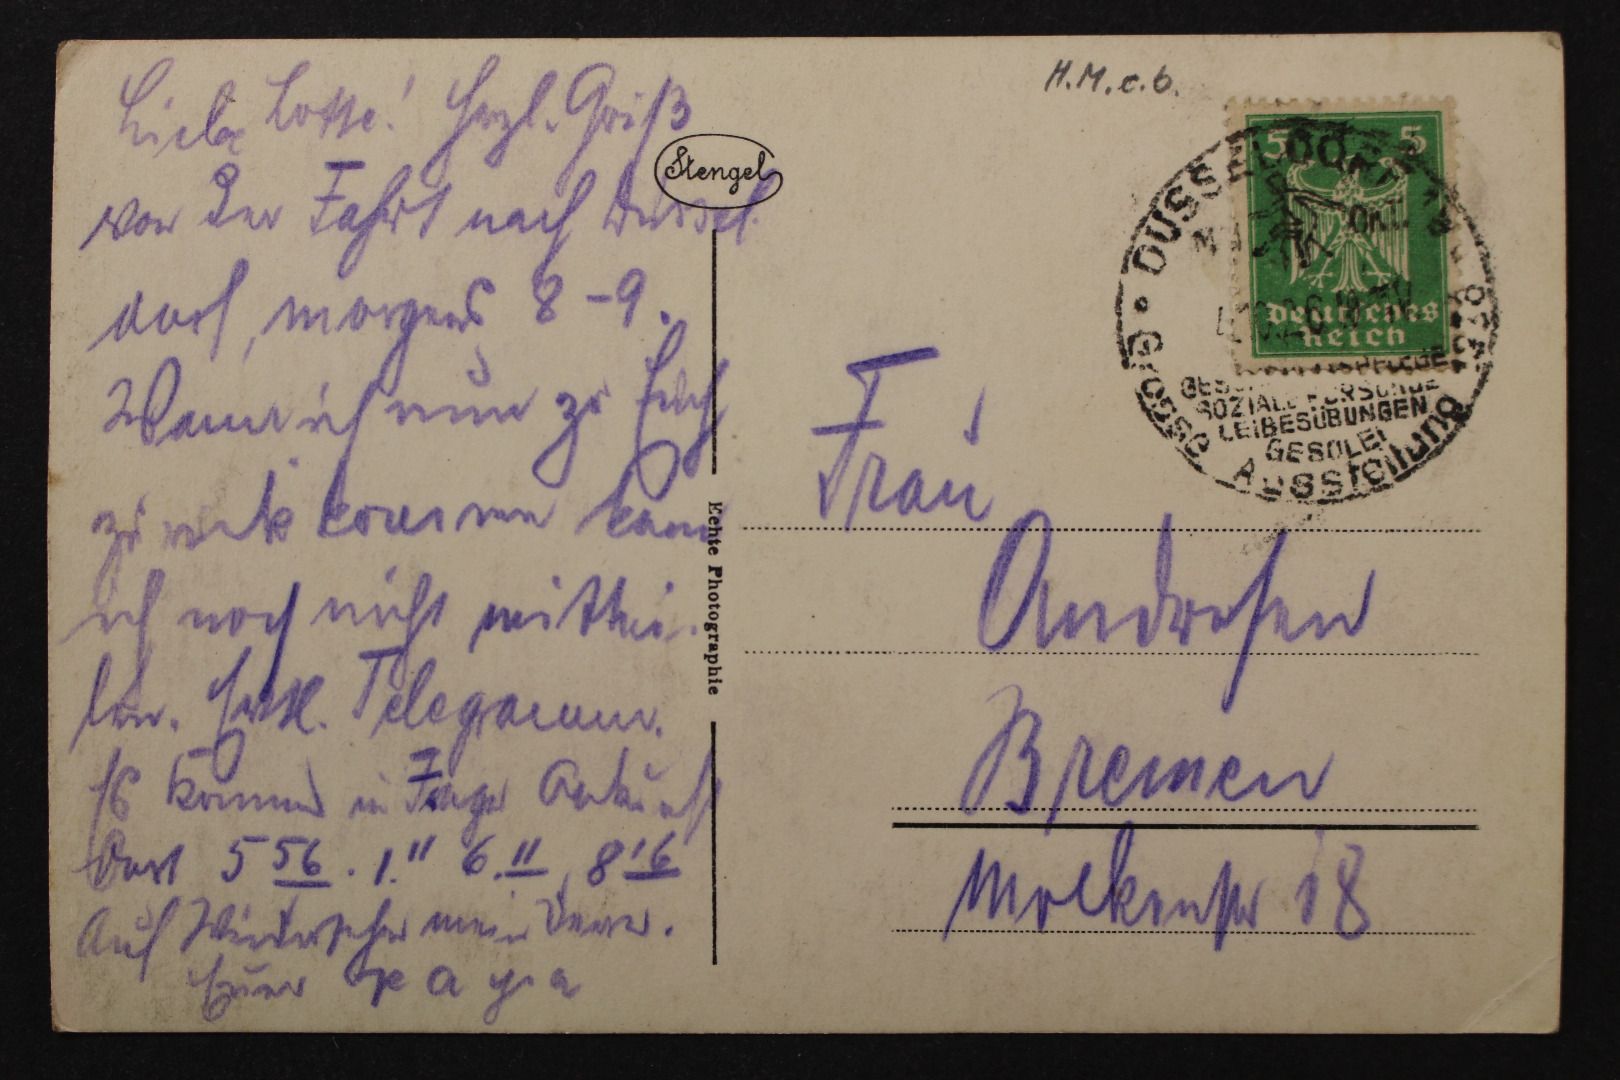 Liebe Lotte! Herzl. Gruß
von der Fahrt nach Düssel-
dorf, morgens 8-9.
Wann ich nun zu Euch
zurück kommen kann
ich noch nicht mitthei-
len. Telegramm.
Es kommen in Frage Ankunft
Dort 5 56. 1." 6." 8 16
Auf Wiedersehn mein
Euer Papa
Stengel
Echte Photographie
H.M.c.6.
5 5
Deutsches
Reich
DÜSSELDORF
GESUNDHEITSPFLEGE
SOZIALE FÜRSORGE
LEIBESÜBUNGEN
GESOLEI
Grosse Ausstellung
Frau
Andresen
Bremen
Molkenstr 18